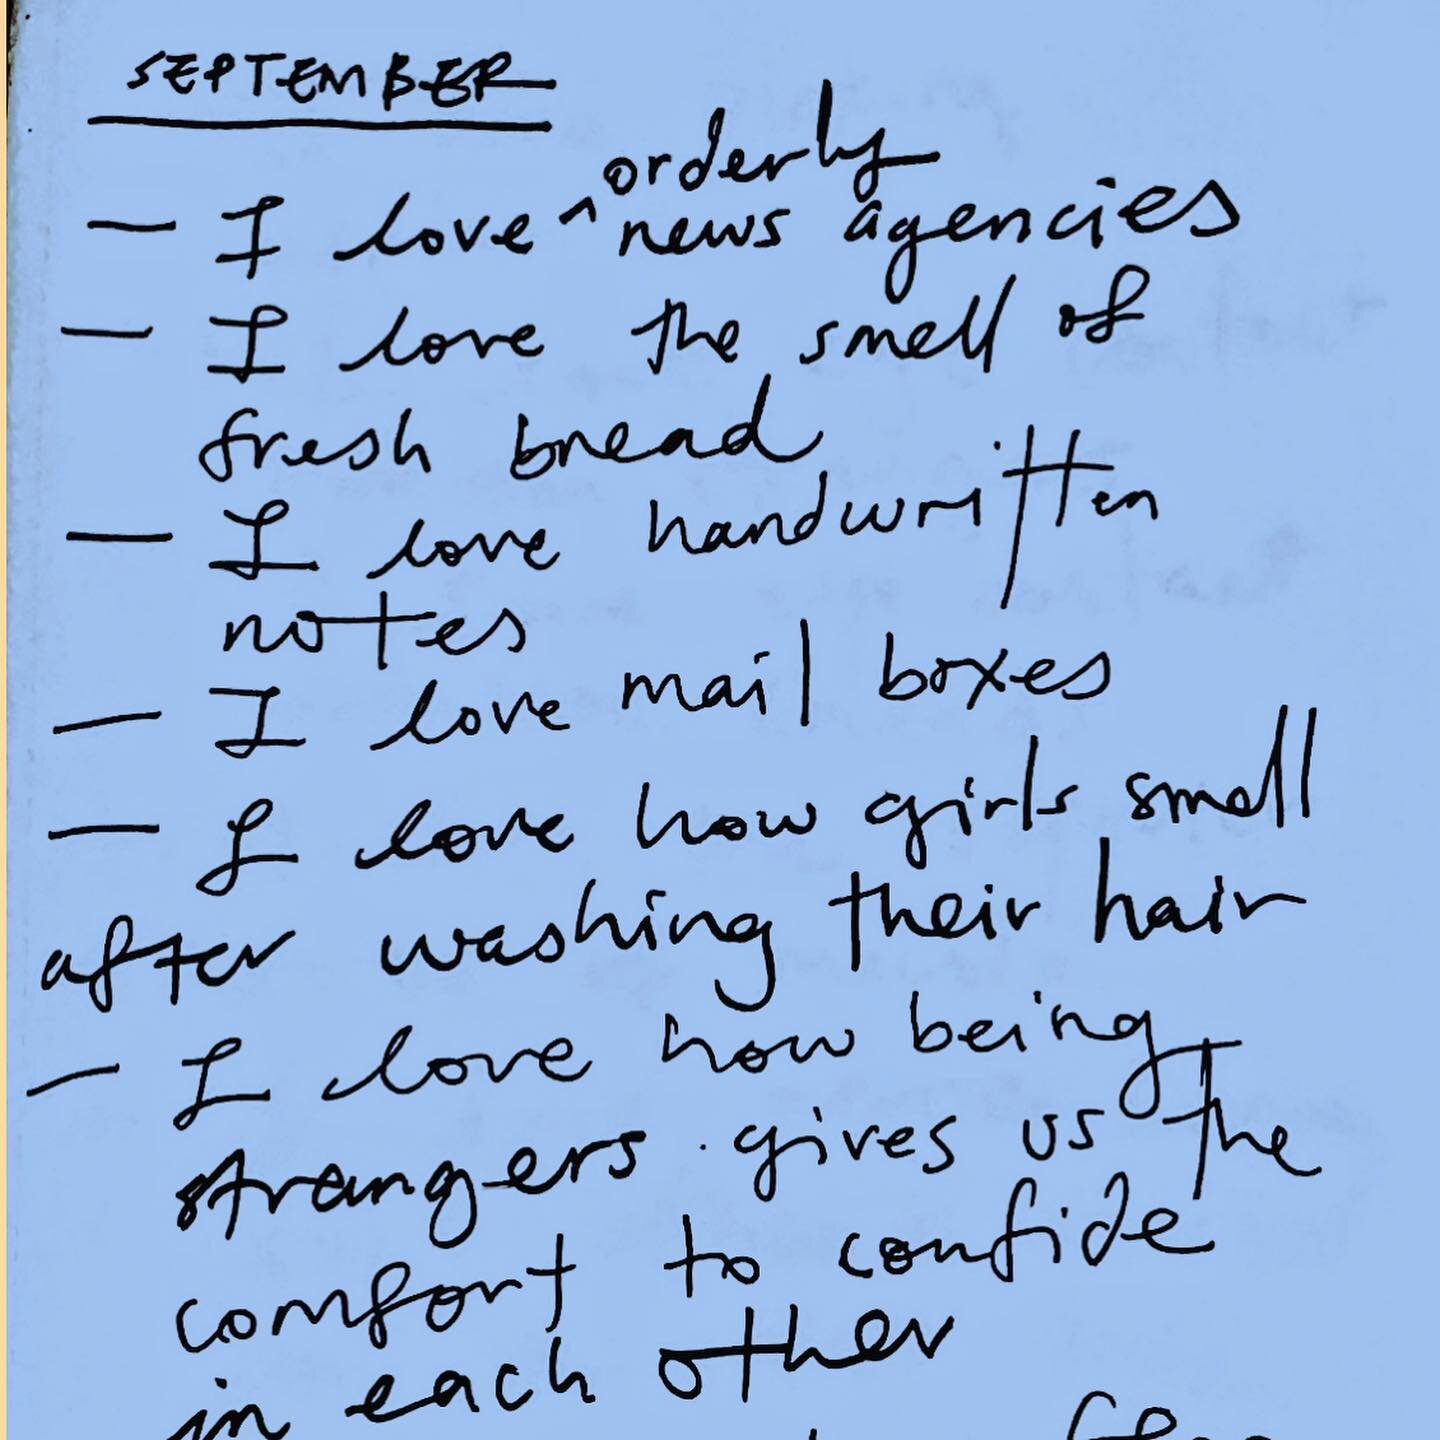 SEPTEMBER
— I love ^ orderly news agencies
— I love the smell of
fresh bread
— I love handwritten
notes
— I love mail boxes
— I love how girls smell
after washing their hair
— I love how being
strangers gives us the
comfort to confide
in each other